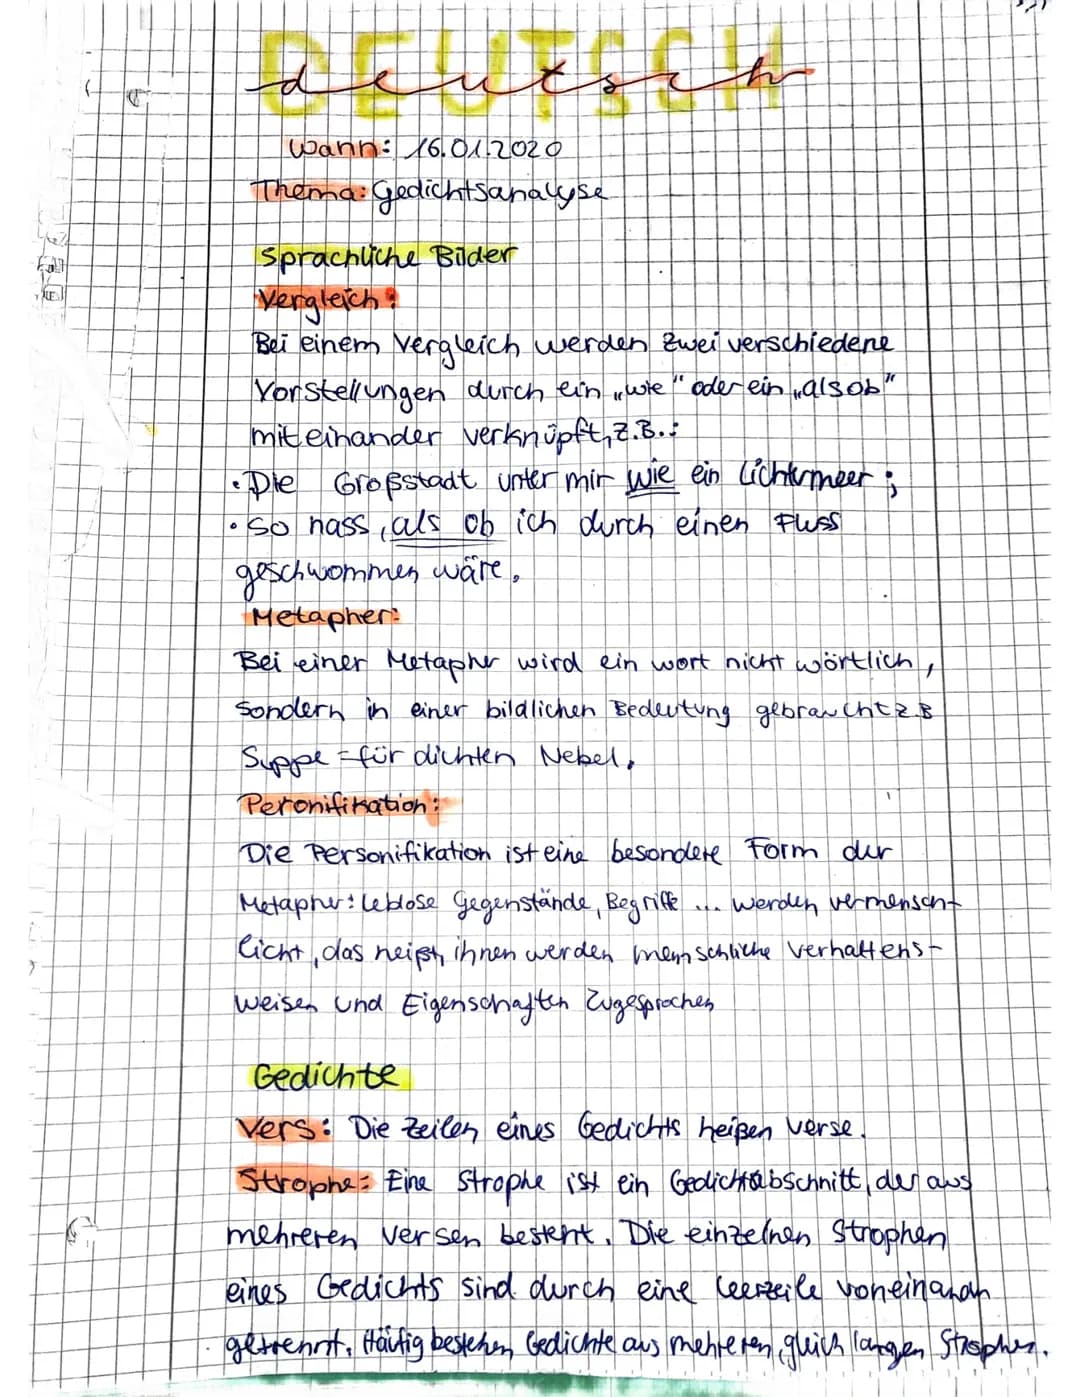 DEUTSCH
deutsch
Wann: 16.01.2020
Thema: Gedichtsanalyse
Sprachliche Bilder
Vergleich:
Bei einem Vergleich werden zwei verschiedene
Vorstellungen durch ein „wie" oder ein „als ob"
miteinander verknüpft, z.B.:
• Die Großstadt unter mir wie ein Lichtermeer;
• So nass, als ob ich durch einen Fluss
geschwommen wäre.
Metapher:
Bei einer Metapher wird ein wort nicht wörtlich,
sondern in einer bildlichen Bedeutung gebraucht z.B
Suppe = für dichten Nebel.
Peronifikation:
Die Personifikation ist eine besondere Form der
Metapher: leblose Gegenstände, Begriffe ... werden vermensch-
licht, das heißt, ihnen werden menschliche Verhaltens-
weisen und Eigenschaften zugesprochen
Gedichte
Vers: Die Zeilen eines Gedichts heißen verse.
Strophe: Eine Strophe ist ein Gedichtabschnitt, der aus
mehreren Versen besteht. Die einzelnen Strophen
eines Gedichts sind durch eine leerzeile voneinander
getrennt. Häufig bestehen Gedichte aus mehreren, gleich langen Strophen.